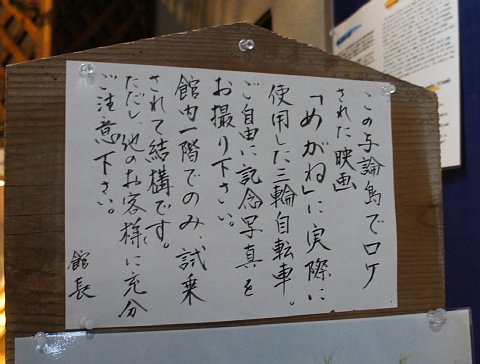 この与論島でロケ
された映画
「めがね」に実際に
使用した三輪自転車。
ご自由に記念写真を
お撮り下さい。
館内一階でのみ、試乗
されて結構です。
ただし、他のお客様に充分
ご注意下さい。
館長